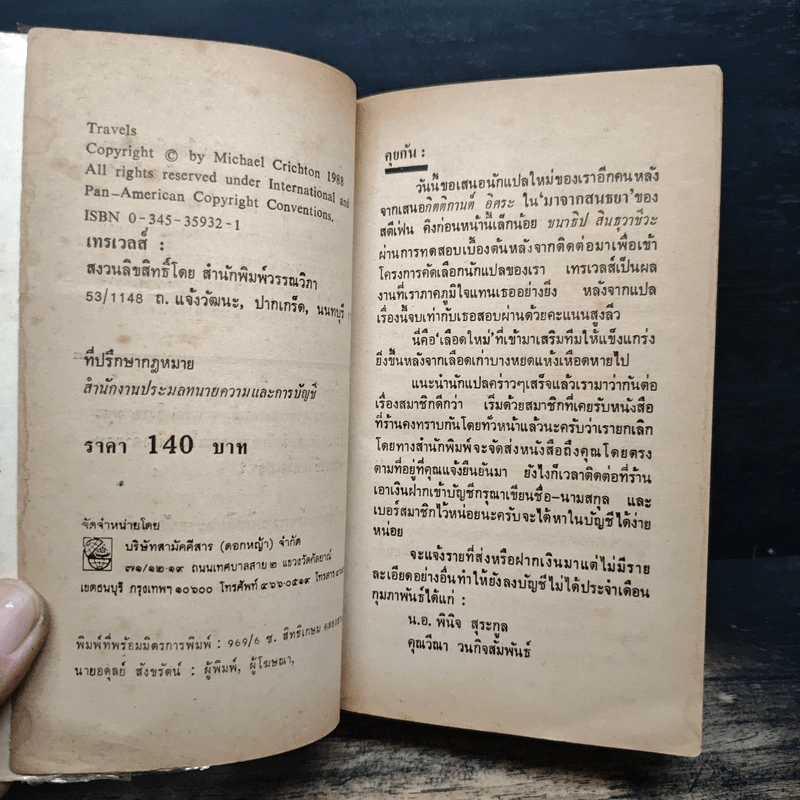 Travels
Copyright © by Michael Crichton 1988
All rights reserved under International and
Pan-American Copyright Conventions.
ISBN 0-345-35932-1
เทรเวลส์ :
สงวนลิขสิทธิ์โดย สำนักพิมพ์วรรณวิภา
53/1148 ถ. แจ้งวัฒนะ, ปากเกร็ด, นนทบุรี
ที่ปรึกษากฎหมาย
สำนักงานประมลทนายความและการบัญชี
ราคา 140 บาท
จัดจำหน่ายโดย
บริษัทสามัคคีสาร (ดอกหญ้า) จำกัด
๗๑/๑๒-๑๙ ถนนเทศบาลสาย ๒ แขวงวัดกัลยาณ์
เขตธนบุรี กรุงเทพฯ ๑๐๖๐๐ โทรศัพท์ ๔๖๖-๐๕๑๙ โทรสาร
พิมพ์ที่พร้อมมิตรการพิมพ์ : 969/6 ซ. สิทธิเกษม
นายอดุลย์ สังขรัตน์ : ผู้พิมพ์, ผู้โฆษณา,
คุยกัน :
วันนี้ขอเสนอนักแปลใหม่ของเราอีกคนหลัง
จากเสนอกิตติกานต์ อิศระ ใน 'มาจากสนธยา' ของ
สตีเฟ่น คิงก่อนหน้านี้เล็กน้อย ชนาธิป สินธุวาชีวะ
ผ่านการทดสอบเบื้องต้นหลังจากติดต่อมาเพื่อเข้า
โครงการคัดเลือกนักแปลของเรา เทรเวลส์เป็นผล
งานที่เราภาคภูมิใจแทนเธออย่างยิ่ง หลังจากแปล
เรื่องนี้จบเท่ากับเธอสอบผ่านด้วยคะแนนสูงลิ่ว
นี่คือ 'เลือดใหม่' ที่เข้ามาเสริมทีมให้แข็งแกร่ง
ยิ่งขึ้นหลังจากเลือดเก่าบางหยดแห้งเหือดหายไป
แนะนำนักแปลคร่าวๆเสร็จแล้วเรามาว่ากันต่อ
เรื่องสมาชิกดีกว่า เริ่มด้วยสมาชิกที่เคยรับหนังสือ
ที่ร้านคงทราบกันโดยทั่วหน้าแล้วนะครับว่าเรายกเลิก
โดยทางสำนักพิมพ์จะจัดส่งหนังสือถึงคุณโดยตรง
ตามที่อยู่ที่คุณแจ้งยืนยันมา ยังไงก็เวลาติดต่อที่ร้าน
เอาเงินฝากเข้าบัญชีกรุณาเขียนชื่อ-นามสกุล และ
เบอร์สมาชิกไว้หน่อยนะครับจะได้หาในบัญชีได้ง่าย
หน่อย
จะแจ้งรายที่ส่งหรือฝากเงินมาแต่ไม่มีราย
ละเอียดอย่างอื่นทำให้ยังลงบัญชีไม่ได้ประจำเดือน
กุมภาพันธ์ได้แก่ :
น.อ. พินิจ สุระกูล
คุณวีณา วนกิจสัมพันธ์